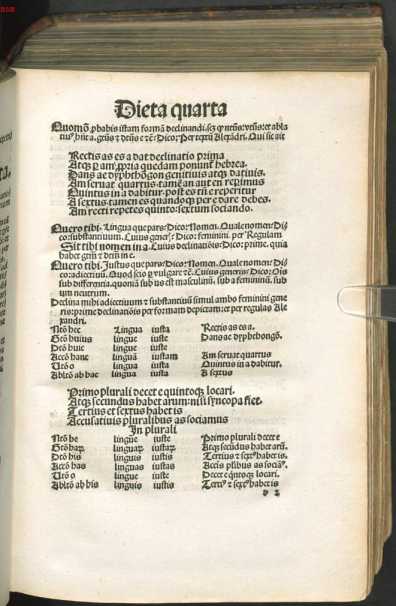 Dieta quarta
Quomō ꝓbabis istam formā declinandi. scȝ ꝙ ntūs: vtūs: et abla
tiuꝰ hūt a. gtūs ⁊ dtūs e ⁊c̄: Dico: Per textū Alexādri. Qui sic ait
Rectis as es a dat declinatio prima
Atqȝ ꝑ am ꝓpria quedam ponunt hebrea.
Dans ae dyphthōgon genitiuis atqȝ datiuis.
Am seruat quartus. tamē an aut en reperimus
Quintus in a dabitur. post es tn̄ e reperitur
A sextus. tamen es quandoqȝ per e dare debes.
Am recti repetes quinto: sextum sociando.
Quero tibi. Lingua que pars: Dico: Nomen. Quale nomen: Di
co: substantiuum. Cuius generꝭ: Dico: feminini. per Regulam
Sit tibi nomen in a. Cuius declinatiōis: Dico: prime. quia
habet gtm̄ ⁊ dtm̄ in e.
Quero tibi. Justus que pars: Dico: Nomen. Quale nomen: Di
co: adiectiuū. Quod scio ꝑ vulgare ⁊c̄. Cuius generis: Dico: Ois
sub differentia. quoniā sub us est masculinū. sub a femininū. sub
um neutrum.
Declina mihi adiectiuum ⁊ substantiuū simul ambo feminini gene
ris: prime declinatiōis per formam depictam: et per regulas Ale
xandri.
Ntō hec Lingua iusta Rectis as es a.
Gtō huius lingue iuste Dans ae dyphthongō.
Dtō huic lingue iuste
Actō hanc linguā iustam Am seruat quartus
Vtō o lingua iusta Quintus in a dabitur.
Abltō ab hac lingua iusta A sextus
Primo plurali decet e quintoqȝ locari.
Atqȝ secundus habet arum: nisi syncopa fiet.
Tertius et sextus habet is
Accusatiuis pluralibus as sociamus
In plurali
Ntō he lingue iuste Primo plurali decet e
Gtō harꝝ linguarꝝ iustarꝝ Atqȝ secūdus habet arū.
Dtō his linguis iustis Tertius ⁊ sextꝰ habet is.
Actō has linguas iustas Accīs plībus as sociāꝰ.
Vtō o lingue iuste Decet e qͥntoqȝ locari.
Abltō ab his linguis iustis Tertiꝰ ⁊ sextꝰ habet is.